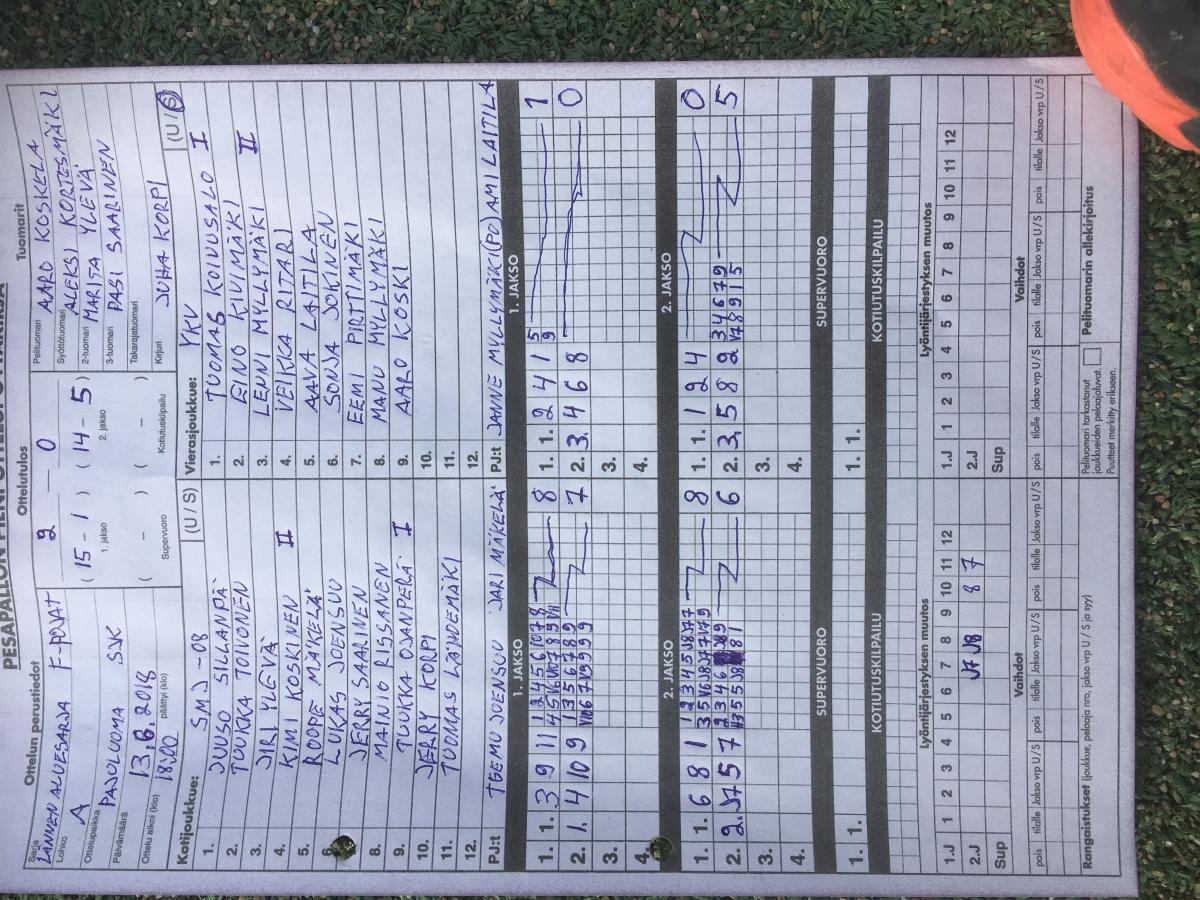 PESÄPALLON PIENI OTTELUPÖYTÄKIRJA
Ottelun perustiedot
Sarja
LÄNNEN ALUESARJA F-POJAT
Lohko
A
Ottelupaikka
PAJULUOMA SJK
Päivämäärä
13.8.2018
Ottelu alkoi (klo)
18:00
päättyi (klo)
Ottelutulos
2 — 0
( 15 - 1 ) ( 14 - 5 )
1. jakso 2. jakso
( - ) ( - )
Supervuoro Kotiutuskilpailu
Tuomarit
Pelituomari AARO KOSKELA
Syöttötuomari ALEKSI KORTESMÄKI
2-tuomari MARISA YLEVÄ
3-tuomari PASI SAARINEN
Takarajatuomari
Kirjuri JUHA KORPI
Kotijoukkue: SMJ -08 (U / S)
1. JUUSO SILLANPÄ
2. TUUKKA TOIVONEN
3. JIRI YLEVÄ
4. KIMI KOSKINEN II
5. ROOPE MÄKELÄ
6. LUKAS JOENSUU
JERRY SAARINEN
8. MAINIO RISSANEN
9. TUUKKA OJANPERÄ I
10. JERRY KORPI
11. TUOMAS LÄHDEMÄKI
12.
PJ:t TEEMU JOENSUU JARI MÄKELÄ
Vierasjoukkue: YKV (U / S)
1. TUOMAS KOIVUSALO I
2. EINO KIVIMÄKI
3. LENNI MYLLYMÄKI II
4. VEIKKA RITARI
5. AAVA LAITILA
6. SONJA JOKINEN
7. EEMI PIRTTIMÄKI
8. MANU MYLLYMÄKI
9. AARO KOSKI
10.
11.
12.
PJ:t JANNE MYLLYMÄKI (PO) AMI LAITILA
1. JAKSO 1. JAKSO
1. 1. 3 9 11 8
2. 1. 4 10 9 7
3.
4.
1. 1. 2 4 1 5 9 1
2. 3. 4 6 8 0
3.
4.
2. JAKSO 2. JAKSO
1. 1. 6 8 1 8
2. 2. J7 5 7 6
3.
4.
1. 1. 1 2 4 0
2. 3. 5 8 2 3 4 6 7 9 5
3.
4.
SUPERVUORO SUPERVUORO
1. 1. 1. 1.
KOTIUTUSKILPAILU KOTIUTUSKILPAILU
Lyöntijärjestyksen muutos Lyöntijärjestyksen muutos
1.J 1 2 3 4 5 6 7 8 9 10 11 12
2.J J7 J8 8 7
Sup
1.J 1 2 3 4 5 6 7 8 9 10 11 12
2.J
Sup
Vaihdot Vaihdot
pois tilalle Jakso vrp U / S pois tilalle Jakso vrp U / S pois tilalle Jakso vrp U / S
pois tilalle Jakso vrp U / S pois tilalle Jakso vrp U / S pois tilalle Jakso vrp U / S
Rangaistukset (joukkue, pelaaja nro, jakso vrp U / S ja syy)
Pelituomari tarkastanut
joukkueiden pelaajaluvat.
Puutteet merkitty erikseen.
Pelituomarin allekirjoitus